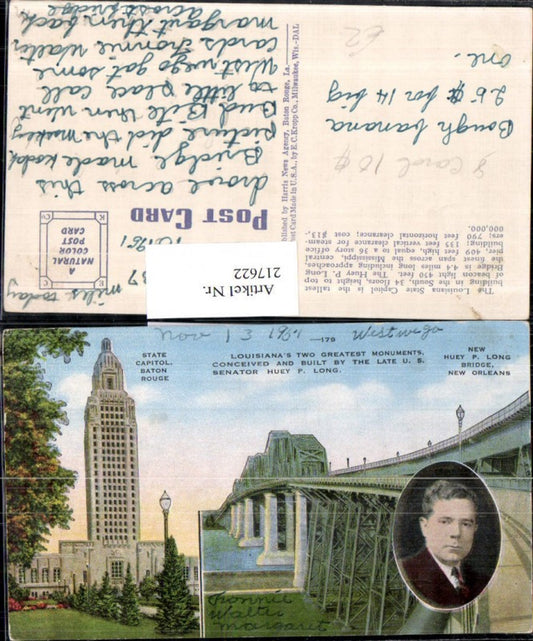 The Louisiana State Capitol is the tallest
building in the South, 34 floors, height to top
of beacon light 450 feet. The Huey P. Long
Bridge is 4.4 miles long including approaches,
the finest span across the Mississippi, central
pier, 409 feet high, equal to a 36 story office
building; 135 feet vertical clearance for steam-
ers; 790 feet horizontal clearance; cost $13,-
000,000.
8 Carol 10¢
Bough banana
25¢ for 14 big
one.
62
Published by Harris News Agency, Baton Rouge, La.
Post Card Made in U.S.A., by E. C. Kropp Co., Milwaukee, Wis.-DAL
POST CARD
A
NATURAL
COLOR
POST
CARD
C K
E
37 miles today
drove across this
Bridge. made kodak
picture did the monkey
Bud Bite then went
to little place call
Westwego got some
cards. Jonnie Walter
margaret then back
across Bridge
Artikel Nr.
217622
Nov 13 Westwego
—179
STATE
CAPITOL,
BATON
ROUGE
LOUISIANA'S TWO GREATEST MONUMENTS,
CONCEIVED AND BUILT BY THE LATE U. S.
SENATOR HUEY P. LONG.
NEW
HUEY P. LONG
BRIDGE,
NEW ORLEANS
Jonnie
Walter
margaret